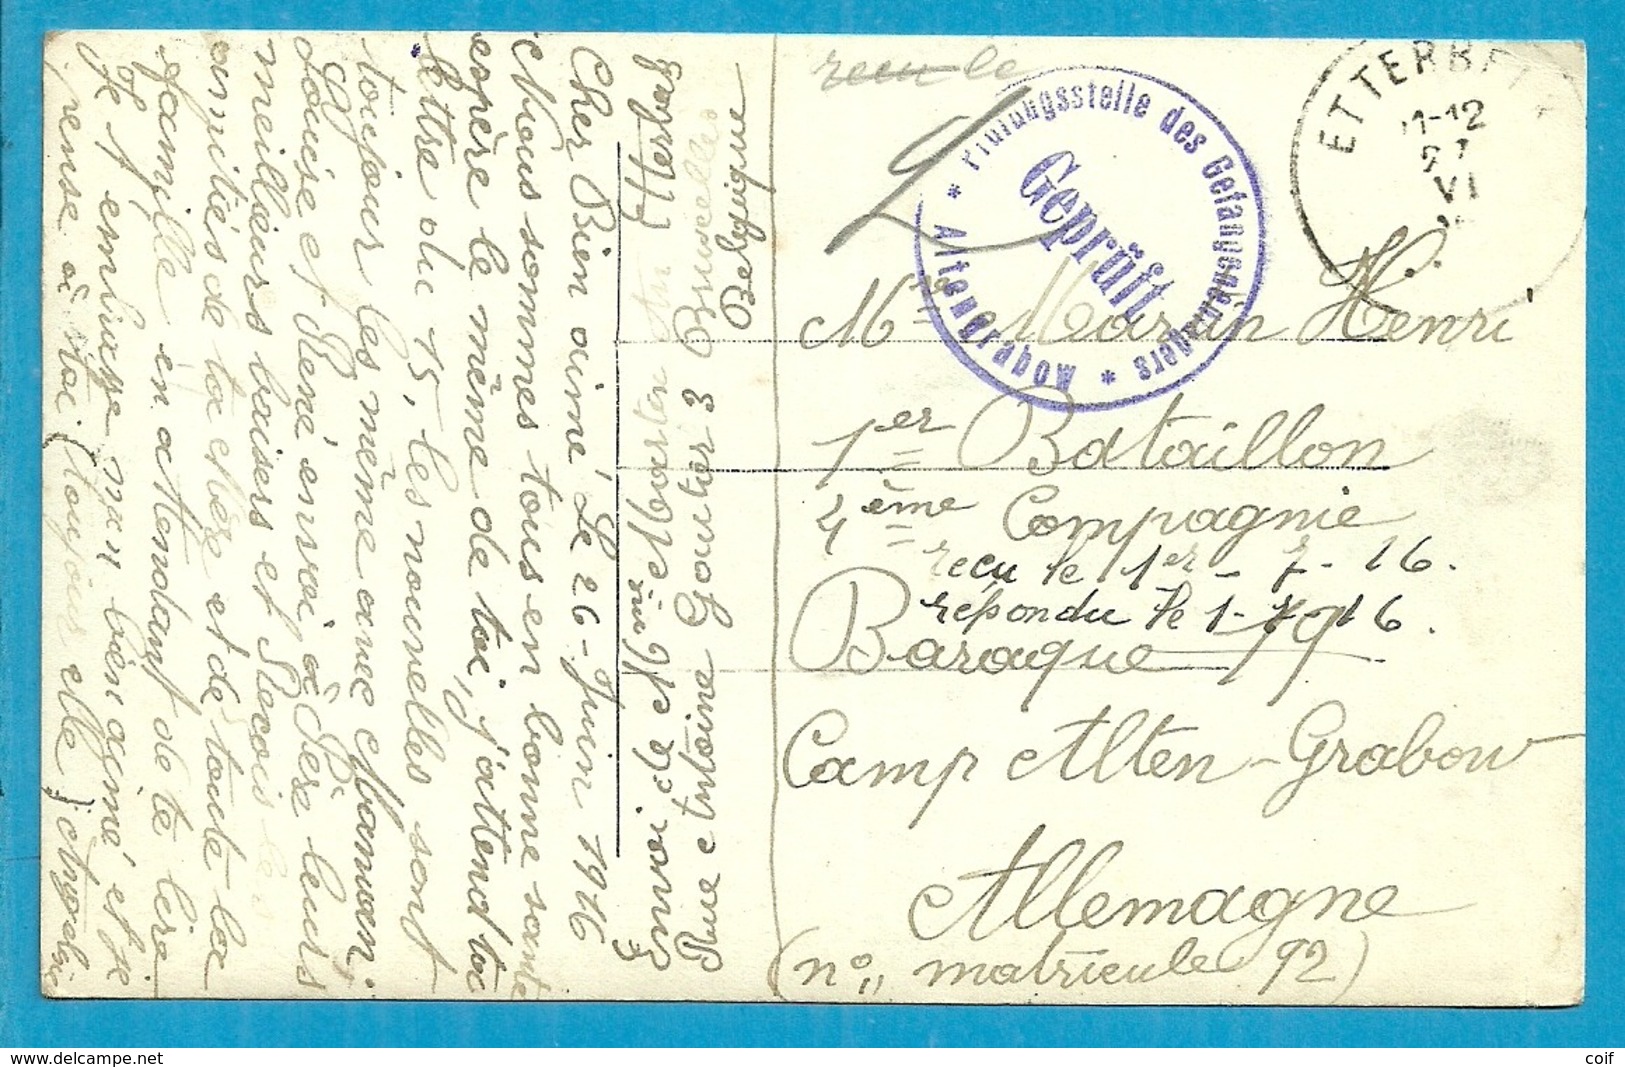 reçu le
Prüfungsstelle des Gefangenenlagers
* Altengrabow *
Geprüft
ETTERBEEK
11-12
VI
Mr Marin Henri H.
1er Bataillon
4ème Compagnie
reçu le 1er - 7 - 16.
répondu le 1 - 7 - 16.
Baraque 19
Camp Alten-Grabow
Allemagne
(no,, matricule 92)
Envoi de
Rue Antoine Gautier 3 Bruxelles
Belgique
Cher Bien aimé Le 26 - Juin 1916
Nous sommes tous en bonne santé
espère le même de toi, j'attend ta
lettre du 15, les nouvelles sont
toujour les même avec Maman.
Louise et René envoi à Père leurs
meilleurs baisers et
amitiés de ta Mère et de toute la
famille en attendant de te lire
Je t'embrasse mon bien aimé et je
pense à toi (toujours elle)
delcampe.net
coif